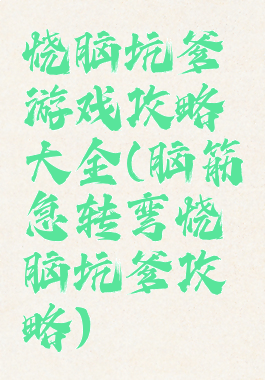 烧脑坑爹
游戏攻略
大全(脑筋
急转弯烧
脑坑爹攻
略)